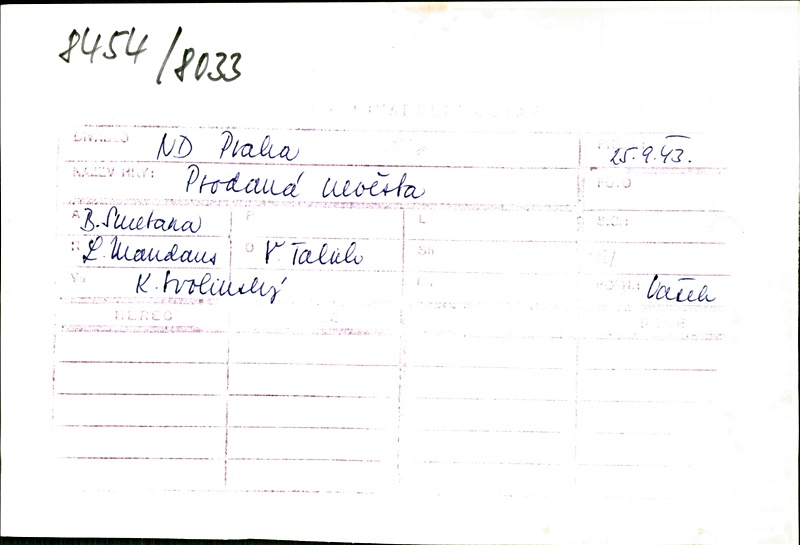 8454/8033
DIVADLO ND Praha 25.9.43.
NÁZEV HRY: Prodaná nevěsta
A B.Smetana P L
R L.Mandaus D V Talich
K.Svolinský Vašek
HEREC